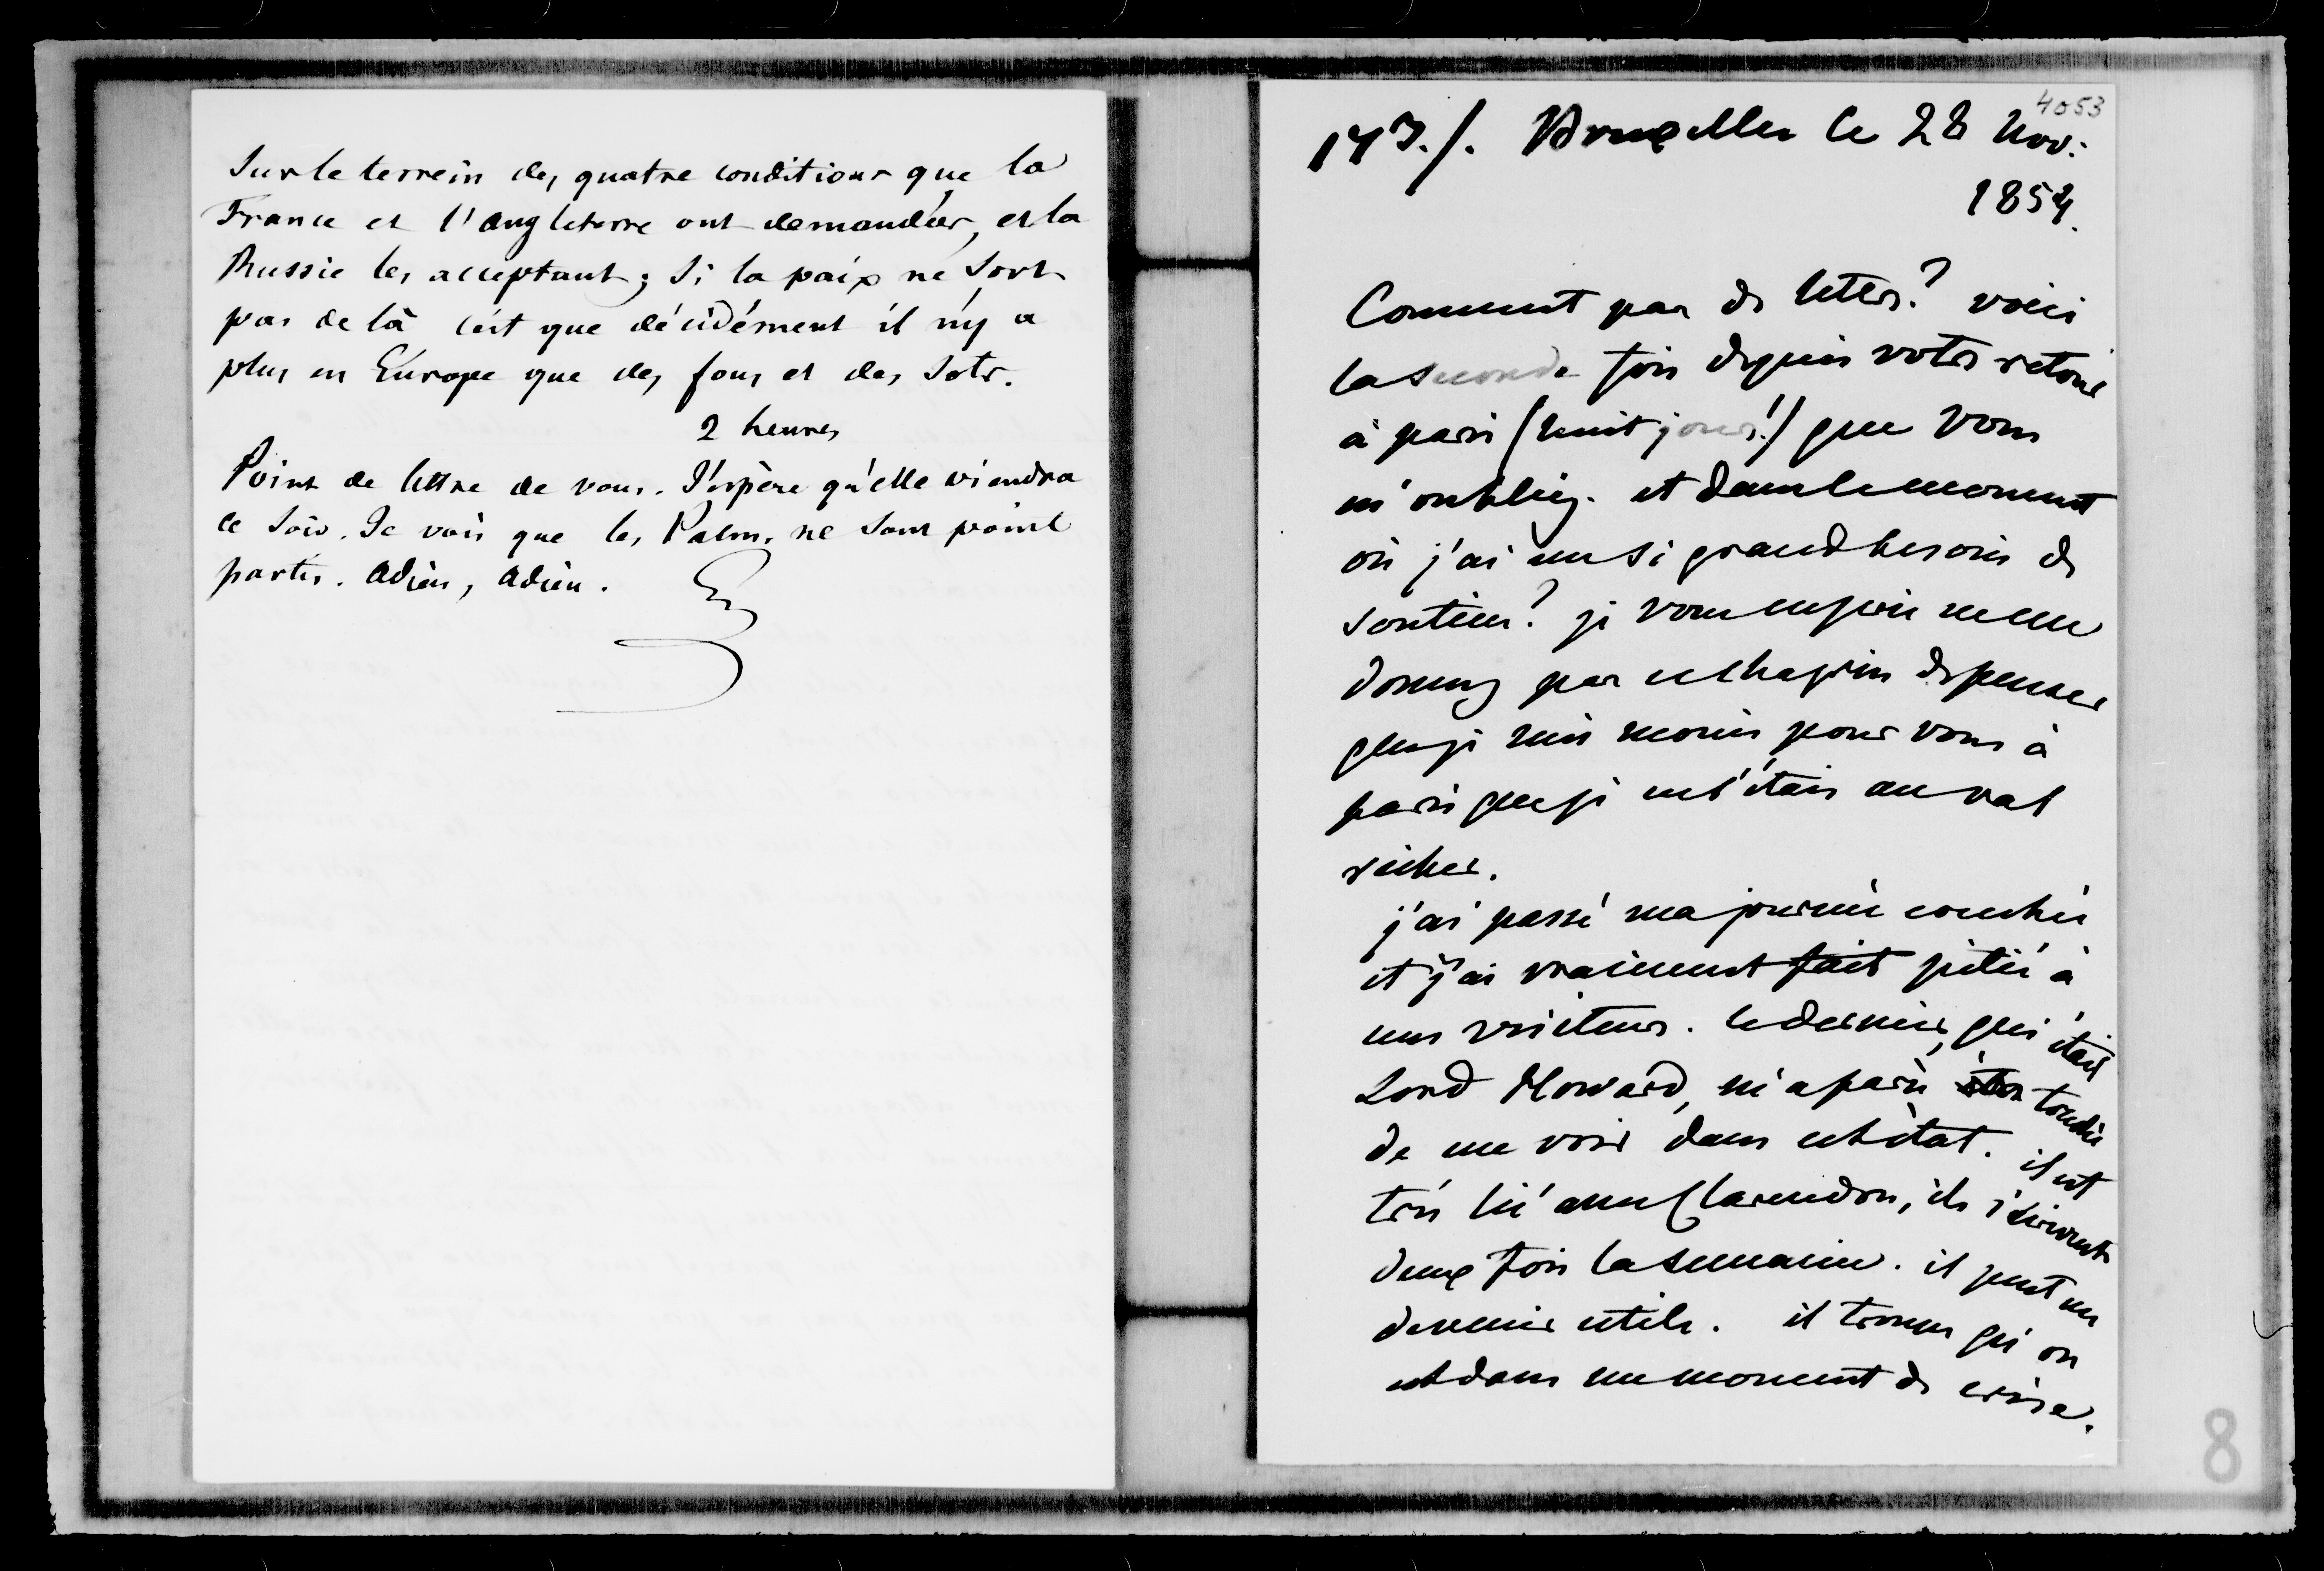 Sur le terrein des quatre conditions que la
France et l'Angleterre ont demandées, et la
Russie les acceptant ; si la paix ne sort
pas de là c'est que décidément il n'y a
plus en Europe que des fous et des sots.
2 heures
Point de lettre de vous. J'espère qu'elle viendra
ce soir. Je vois que les Palm. ne sont point
partis. Adieu, Adieu.
4053
147./. Bruxelles le 28 Nov:
1854.
Comment pas de lettre? voici
la seconde fois depuis votre retour
à paris (huit jours!) que vous
m'oubliez. et dans le moment
où j'ai un si grand besoin de
soutien? je vous en prie ne me
donnez pas ce chagrin de penser
que je suis moins pour vous à
paris que je ne l'étais au val
richer.
j'ai passé ma journée couchée
et j'ai vraiment fait pitié à
mes visiteurs. le dernier, qui était
Lord Howard, m'a paru touché
de me voir dans cet état. il est
très lié avec Clarendon, ils s'écrivent
deux fois la semaine. il peut me
devenir utile. il trouve qu'on
est dans un moment de crise.
8